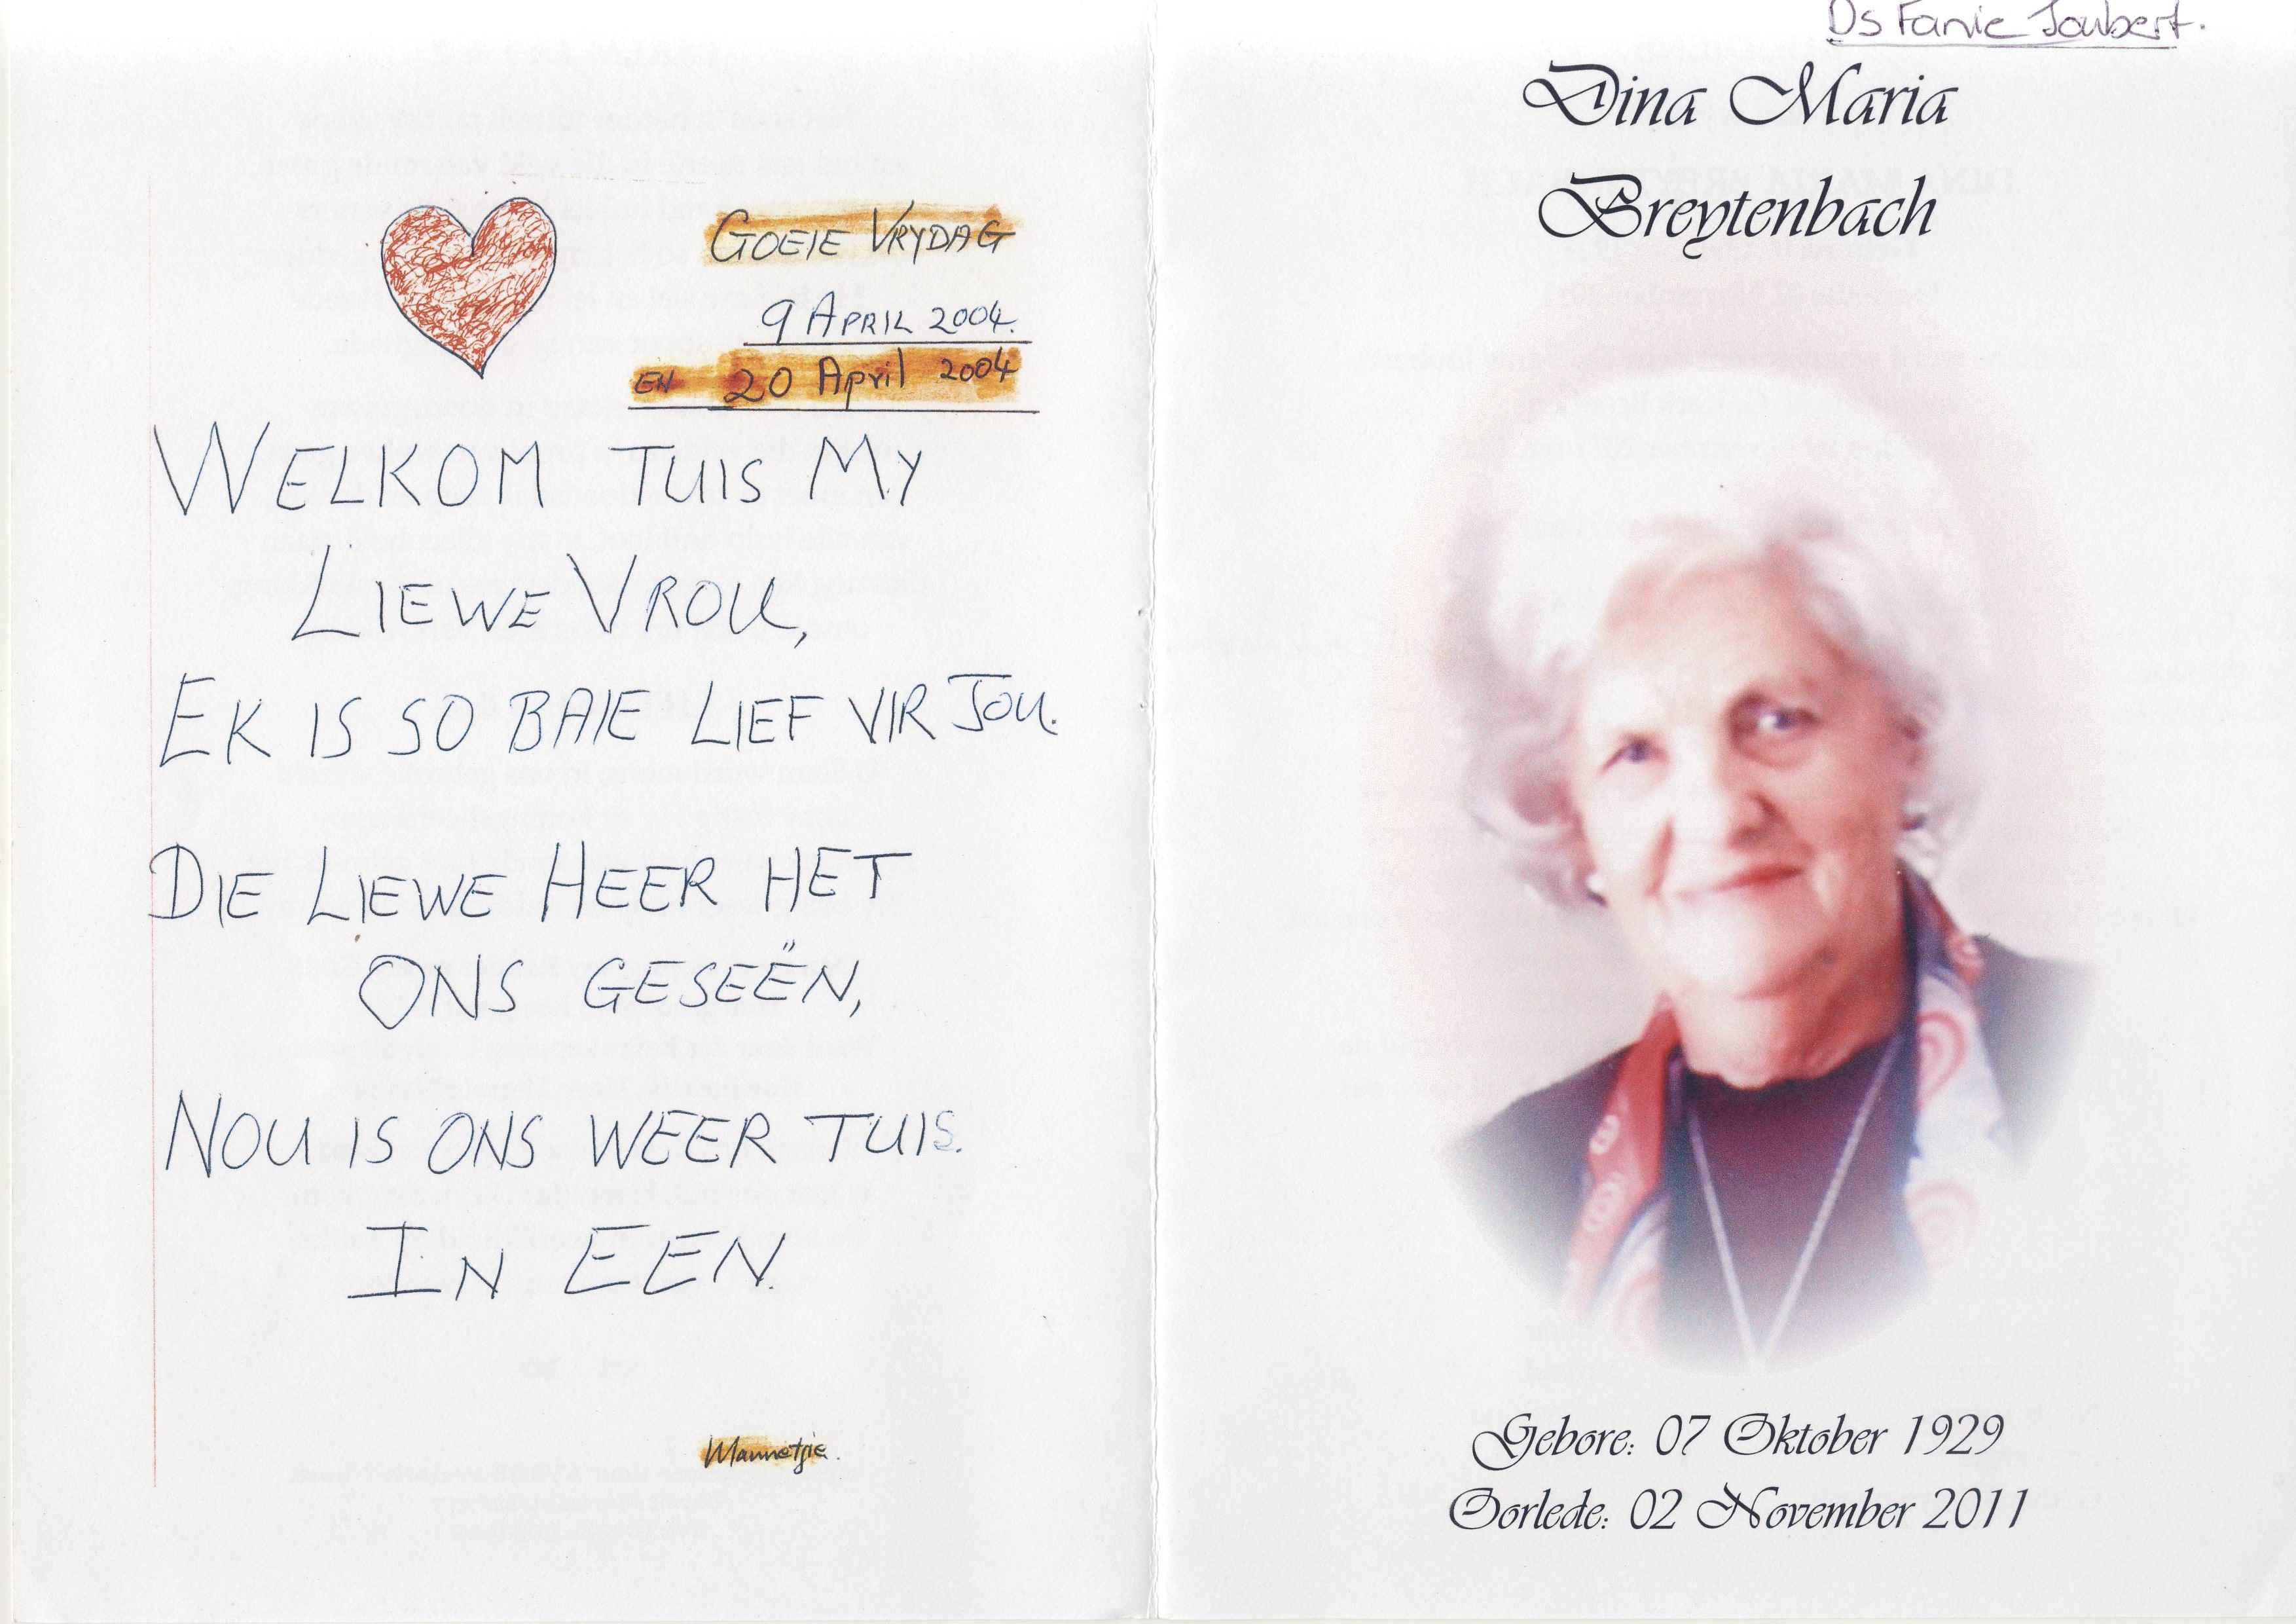 GOEIE VRYDAG
9 APRIL 2004.
EN 20 April 2004
WELKOM TUIS MY
LIEWE VROU,
EK IS SO BAIE LIEF VIR JOU.
DIE LIEWE HEER HET
ONS GESEËN,
NOU IS ONS WEER TUIS.
IN EEN.
Mannetjie.
Ds Fanie Joubert.
Dina Maria
Breytenbach
Gebore: 07 Oktober 1929
Oorlede: 02 November 2011